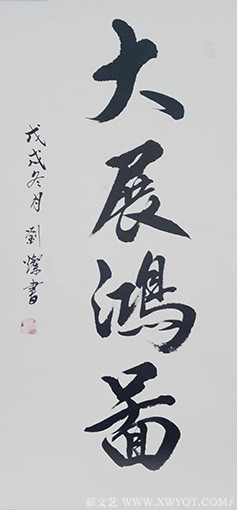 大展鸿图
戊戌冬月刘灿书
新文艺 WWW.XWYQT.COM/